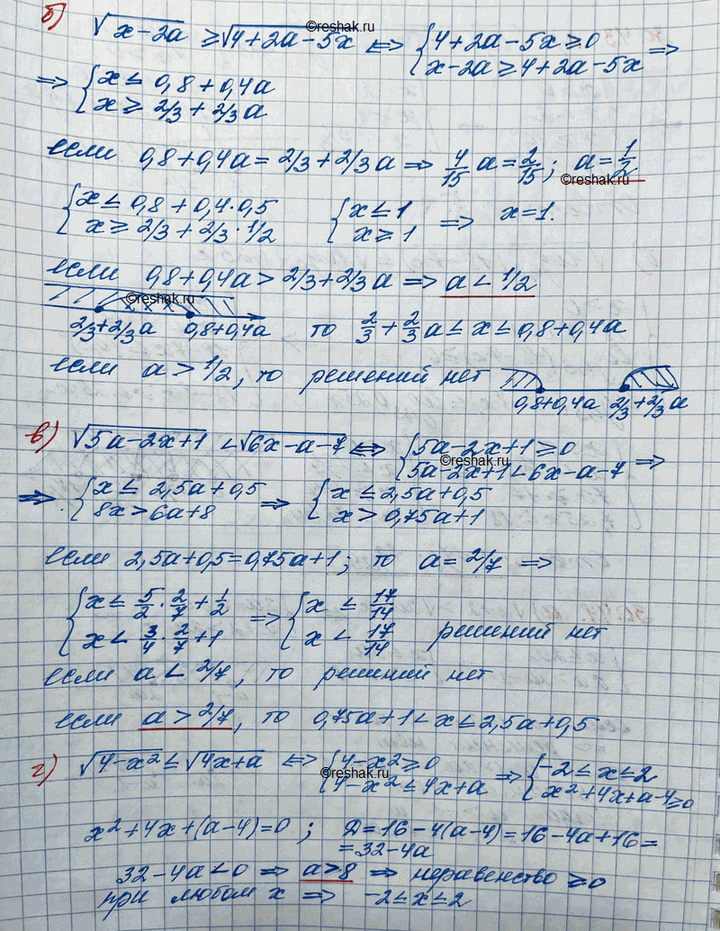 ©reshak.ru
б) √(x-2a) ≥ √(4+2a-5x) ⇔ { 4+2a-5x ≥ 0 ; x-2a ≥ 4+2a-5x ⇒
⇒ { x ≤ 0,8+0,4a ; x ≥ 2/3+2/3a
если 0,8+0,4a = 2/3+2/3a ⇒ 4/15 a = 2/15; a = 1/2
©reshak.ru
{ x ≤ 0,8+0,4·0,5 ; x ≥ 2/3+2/3·1/2 { x ≤ 1 ; x ≥ 1 ⇒ x=1.
если 0,8+0,4a > 2/3+2/3a ⇒ a < 1/2
©reshak.ru
2/3+2/3a 0,8+0,4a то 2/3+2/3a ≤ x ≤ 0,8+0,4a
если a > 1/2, то решений нет
0,8+0,4a 2/3+2/3a
в) √(5a-2x+1) < √(6x-a-7) ⇔ { 5a-2x+1 ≥ 0 ; 5a-2x+1 < 6x-a-7 ⇒
©reshak.ru
⇒ { x ≤ 2,5a+0,5 ; 8x > 6a+8 ⇒ { x ≤ 2,5a+0,5 ; x > 0,75a+1
если 2,5a+0,5 = 0,75a+1; то a = 2/7 ⇒
{ x ≤ 5/2·2/7+1/2 ; x < 3/4·2/7+1 ⇒ { x ≤ 17/14 ; x < 17/14 решений нет
если a < 2/7, то решений нет
если a > 2/7, то 0,75a+1 < x ≤ 2,5a+0,5
г) √(4-x²) ≤ √(4x+a) ⇔ { 4-x² ≥ 0 ; 4-x² ≤ 4x+a ⇒ { -2 ≤ x ≤ 2 ; x²+4x+a-4 ≥ 0
©reshak.ru
x²+4x+(a-4)=0 ; Д=16-4(a-4)=16-4a+16=
=32-4a
32-4a < 0 ⇒ a > 8 ⇒ неравенство ≥ 0
при любом x ⇒ -2 ≤ x ≤ 2